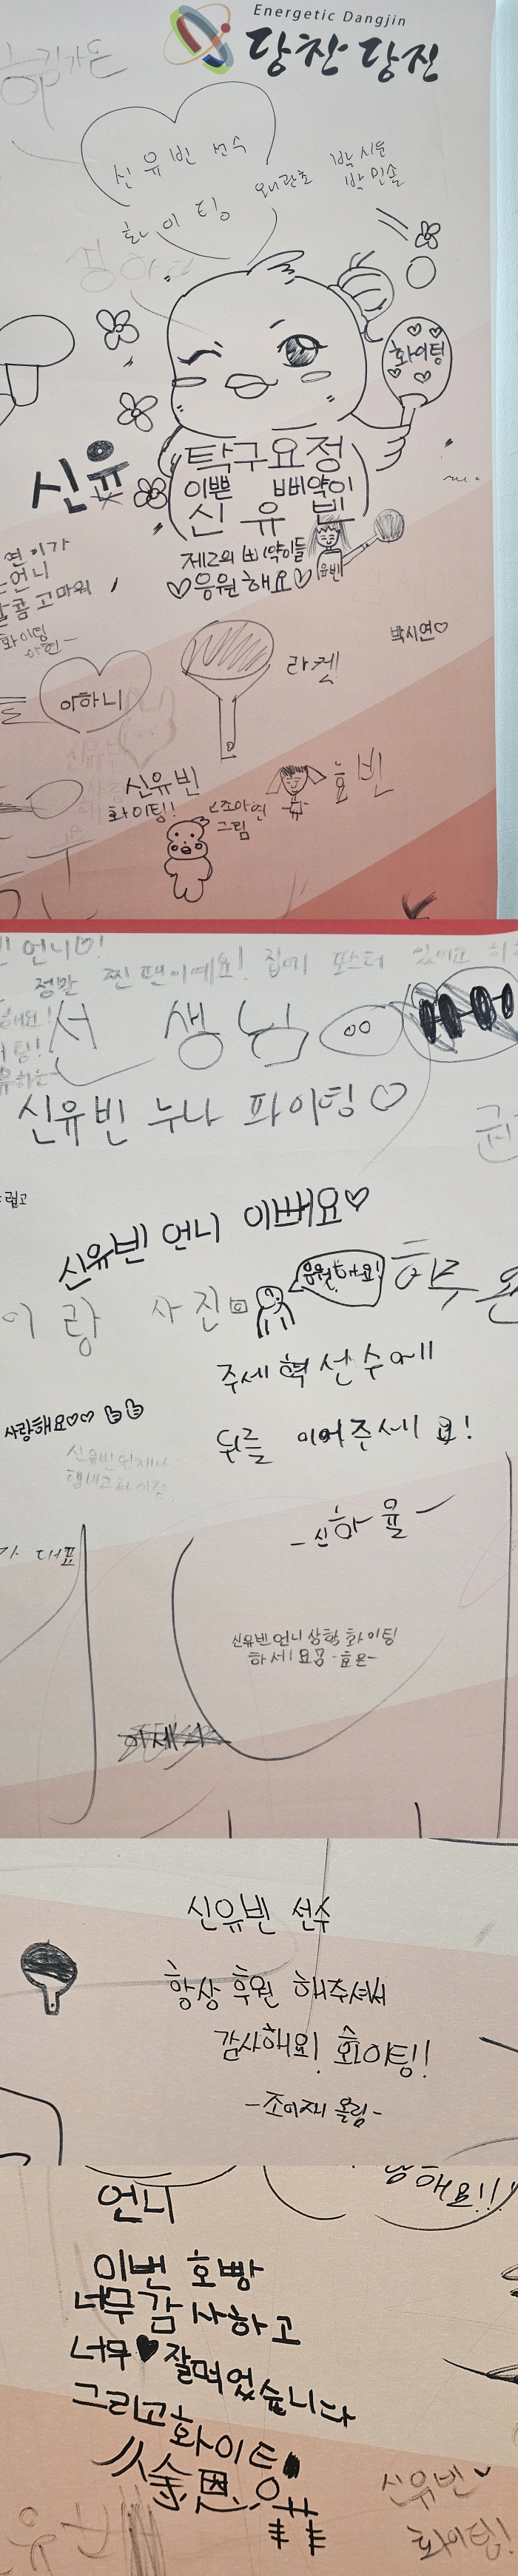 Energetic Dangjin
당찬 당진
신유빈 선수
화이팅
왜관초
박시윤
박민솔
화이팅
탁구요정
이쁜 삐약이
신유빈
신유
제2의 삐약이들
♡응원해요♡
유빈
연이가
언니
고마워
화이팅
박시연♡
라켓
아하니
신유빈
화이팅!
조아연
그림
효빈
언니
정말 찐팬이예요! 집에 포스터 있어요
선생님
신유빈 누나 파이팅♡
신유빈 언니 이뻐요♡
응원해요!
하루
이랑 사진
주세혁 선수에
뒤를 이어주세요!
사랑해요♡♡
대표
-신하율-
신유빈언니 상향 화이팅
하세요 -효은-
신유빈 선수
항상 후원 해주셔서
감사해요! 화이팅!!
-조이재 올림-
해요!!!
언니
이번 호빵
너무 감사하고
너무♥잘먹었습니다
그리고화이팅
신유빈
화이팅!